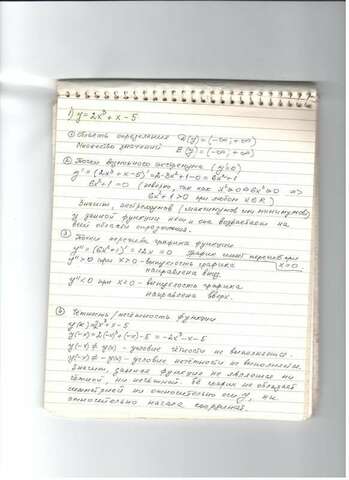 1) y=2x³+x-5
① Область определения D(y)=(-∞;+∞)
Множество значений E(y)=(-∞;+∞)
② Точки возможного экстремума (y'=0)
y'=(2x³+x-5)'=2·3x²+1-0=6x²+1
6x²+1=0 (неверно, так как x²≥0⇒6x²≥0 ⇒
6x²+1>0 при любом x∈R)
Значит, экстремумов (максимумов или минимумов)
у данной функции нет и она возрастает на
всей области определения.
③ Точки перегиба графика функции
y''=(6x²+1)'=12x=0 график имеет перегиб при
y''>0 при x>0-выпуклость графика x=0
направлена вниз.
y''<0 при x<0-выпуклость графика
направлена вверх.
④ Четность/нечетность функции
y(x)=2x³+x-5
y(-x)=2(-x)³+(-x)-5=-2x³-x-5
y(-x)≠y(x)-условие чётности не выполняется.
y(-x)≠-y(x)-условие нечётности не выполняется.
Значит, данная функция не является ни
чётной, ни нечётной. Её график не обладает
симметрией ни относительно оси y, ни
относительно начала координат.